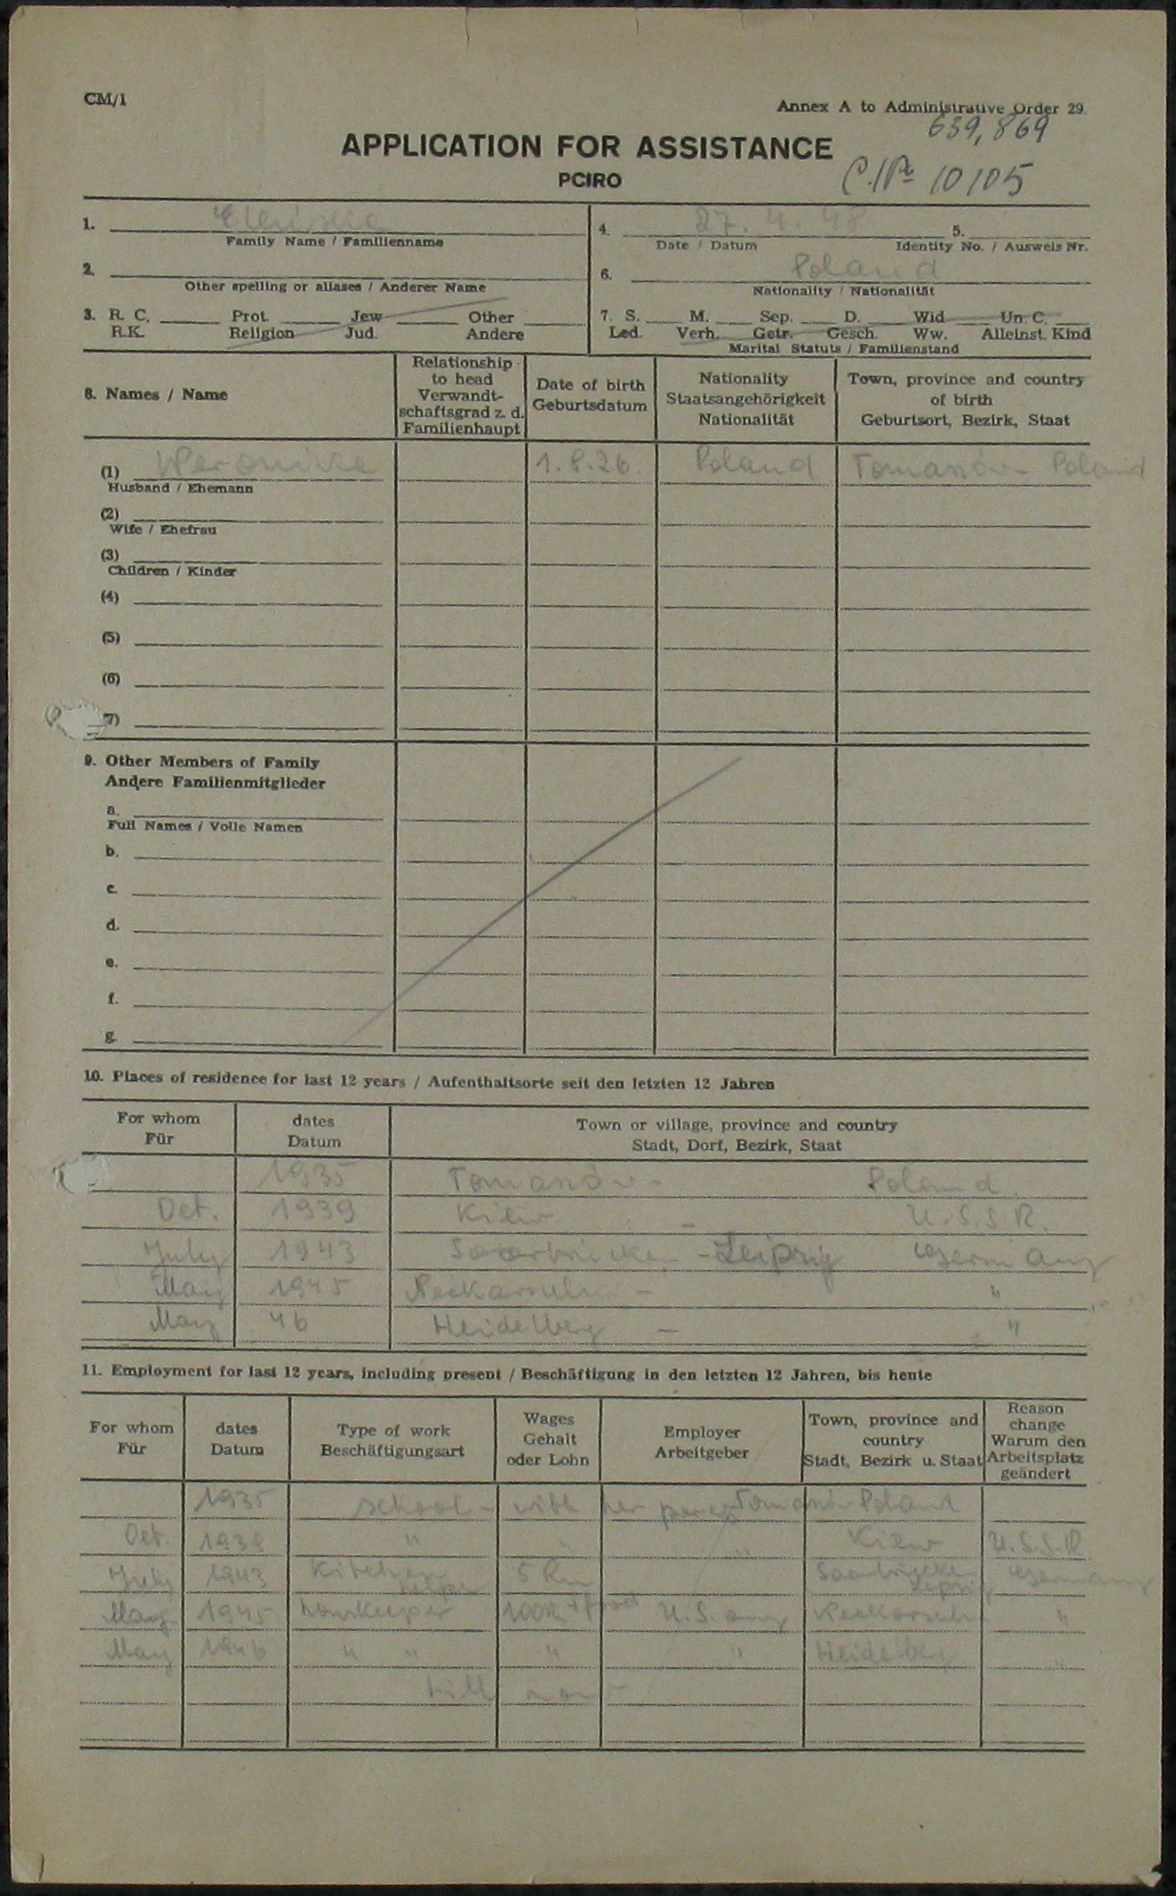 CM/1
Annex A to Administrative Order 29
639,869
APPLICATION FOR ASSISTANCE
PCIRO
10105
1.
Family Name / Familienname
2.
Other spelling or aliases / Anderer Name
3. R. C. Prot. Jew Other
R.K. Religion Jud. Andere
4. 27. 4. 48 5.
Date / Datum Identity No. / Ausweis Nr.
6. Poland
Nationality / Nationalität
7. S. M. Sep. D. Wid Un. C.
Led. Verh. Getr. Gesch. Ww. Alleinst. Kind
Marital Statuts / Familienstand
8. Names / Name
Relationship
to head
Verwandt-
schaftsgrad z. d.
Familienhaupt
Date of birth
Geburtsdatum
Nationality
Staatsangehörigkeit
Nationalität
Town, province and country
of birth
Geburtsort, Bezirk, Staat
(1) Weronika 1.8.26. Poland Tomasów - Poland
Husband / Ehemann
(2)
Wife / Ehefrau
(3)
Children / Kinder
(4)
(5)
(6)
(7)
9. Other Members of Family
Andere Familienmitglieder
a.
Full Names / Volle Namen
b.
c.
d.
e.
f.
g.
10. Places of residence for last 12 years / Aufenthaltsorte seit den letzten 12 Jahren
For whom
Für
dates
Datum
Town or village, province and country
Stadt, Dorf, Bezirk, Staat
1935 Tomasów - Poland
Oct. 1939 Kiew - U.S.S.R.
July 1943 Saarbrücken - Leipzig Germany
May 1945 Neckarsulm - "
May 46 Heidelberg - "
11. Employment for last 12 years, including present / Beschäftigung in den letzten 12 Jahren, bis heute
For whom
Für
dates
Datum
Type of work
Beschäftigungsart
Wages
Gehalt
oder Lohn
Employer
Arbeitgeber
Town, province and
country
Stadt, Bezirk u. Staat
Reason
change
Warum den
Arbeitsplatz
geändert
1935 school - with her Tomasów Poland
Oct. 1939 " " " Kiew U.S.S.R.
July 1943 Kitchen helper 5 Rm Saarbrücken Leipzig Germany
May 1945 houskeeper 100R + food U.S. army Neckarsulm "
May 1946 " " " " Heidelberg "
till now